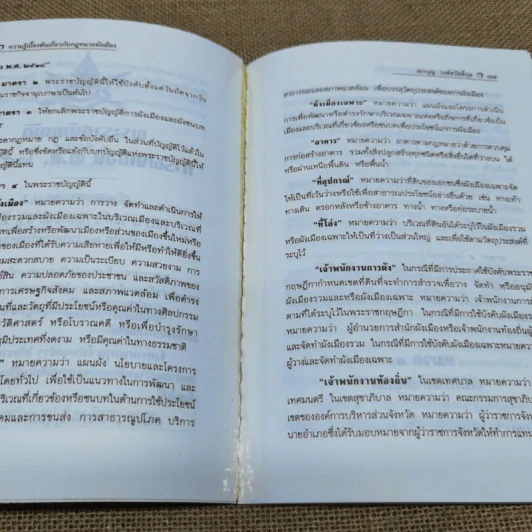 ความรู้เบื้องต้นเกี่ยวกับกฎหมายผังเมือง
พ.ศ. ๒๕๑๘
มาตรา ๒ พระราชบัญญัตินี้ให้ใช้บังคับตั้งแต่วันถัดจากวัน
ราชกิจจานุเบกษาเป็นต้นไป
มาตรา ๓ ให้ยกเลิกพระราชบัญญัติการผังเมืองและผังชนบท
บทกฎหมาย กฎ และข้อบังคับอื่น ในส่วนที่บัญญัติไว้แล้วใน
หรือซึ่งขัดหรือแย้งกับบทบัญญัติแห่งพระราชบัญญัตินี้ให้
นี้แทน
๔ ในพระราชบัญญัตินี้
เมือง” หมายความว่า การวาง จัดทำและดำเนินการให้
รวมและผังเมืองเฉพาะในบริเวณเมืองและบริเวณที่
เพื่อสร้างหรือพัฒนาเมืองหรือส่วนของเมืองขึ้นใหม่หรือ
ของเมืองที่ได้รับความเสียหายเพื่อให้มีหรือทำให้ดียิ่งขึ้น
สะดวกสบาย ความเป็นระเบียบ ความสวยงาม การ
สิน ความปลอดภัยของประชาชน และสวัสดิภาพของ
การเศรษฐกิจสังคม และสภาพแวดล้อม เพื่อดำรง
และวัตถุที่มีประโยชน์หรือคุณค่าในทางศิลปกรรม
วัติศาสตร์ หรือโบราณคดี หรือเพื่อบำรุงรักษา
ภูมิประเทศที่งดงาม หรือมีคุณค่าในทางธรรมชาติ
หมายความว่า แผนผัง นโยบายและโครงการ
โดยทั่วไป เพื่อใช้เป็นแนวทางในการพัฒนา และ
บริเวณที่เกี่ยวข้องหรือชนบทในด้านการใช้ประโยชน์
คมและการขนส่ง การสาธารณูปโภค บริการ
สาธารณะและสภาพแวดล้อม เพื่อบรรลุวัตถุประสงค์ของการผังเมือง
“ผังเมืองเฉพาะ” หมายความว่า แผนผังและโครงการดำเนิน
การเพื่อพัฒนาหรือดำรงรักษาบริเวณเฉพาะแห่งหรือกิจการที่เกี่ยวข้องใน
เมืองและบริเวณที่เกี่ยวข้องหรือชนบทเพื่อประโยชน์แก่การผังเมือง
“อาคาร” หมายความว่า อาคารตามกฎหมายว่าด้วยการควบคุม
การก่อสร้างอาคาร รวมทั้งสิ่งปลูกสร้างทุกชนิดหรือสิ่งอื่นใดที่วางบน ใต้
หรือผ่านเหนือพื้นดิน หรือพื้นน้ำ
“ที่อุปกรณ์” หมายความว่าที่ดินของเอกชนซึ่งผังเมืองเฉพาะจัด
ให้เป็นที่เว้นว่างหรือใช้เพื่อสาธารณประโยชน์อย่างอื่นด้วย เช่น ทางเท้า
ทางเดิน ตรอกหลังหรือข้างอาคาร ทางน้ำ ทางหรือท่อระบายน้ำ
“ที่โล่ง” หมายความว่า บริเวณที่ดินอันได้ระบุไว้ในผังเมืองรวม
หรือผังเมืองเฉพาะให้เป็นที่ว่างเป็นส่วนใหญ่ และเพื่อใช้ตามวัตถุประสงค์ที่
ระบุไว้
“เจ้าพนักงานการผัง” ในกรณีที่มีการประกาศใช้บังคับพระราช
กฤษฎีกากำหนดเขตที่ดินที่จะทำการสำรวจเพื่อวาง จัดทำ หรืออนุมัติ
ผังเมืองรวมและหรือผังเมืองเฉพาะ หมายความว่า เจ้าพนักงานการผัง
ตามที่ได้ระบุไว้ในพระราชกฤษฎีกา ในกรณีที่มีการใช้บังคับผังเมืองรวม
หมายความว่า ผู้อำนวยการสำนักผังเมืองหรือเจ้าพนักงานท้องถิ่น
ผู้วาง ในกรณีที่มีการใช้บังคับผังเมืองเฉพาะ หมายความว่า เจ้าพนักงาน
ผู้วางและจัดทำผังเมืองเฉพาะ
“เจ้าพนักงานท้องถิ่น” ในเขตเทศบาล หมายความว่า
เทศมนตรี ในเขตสุขาภิบาล หมายความว่า คณะกรรมการสุขาภิบาล
เขตขององค์การบริหารส่วนจังหวัด หมายความว่า ผู้ว่าราชการจังหวัด
นายอำเภอซึ่งได้รับมอบหมายจากผู้ว่าราชการจังหวัดให้ทำการแทน